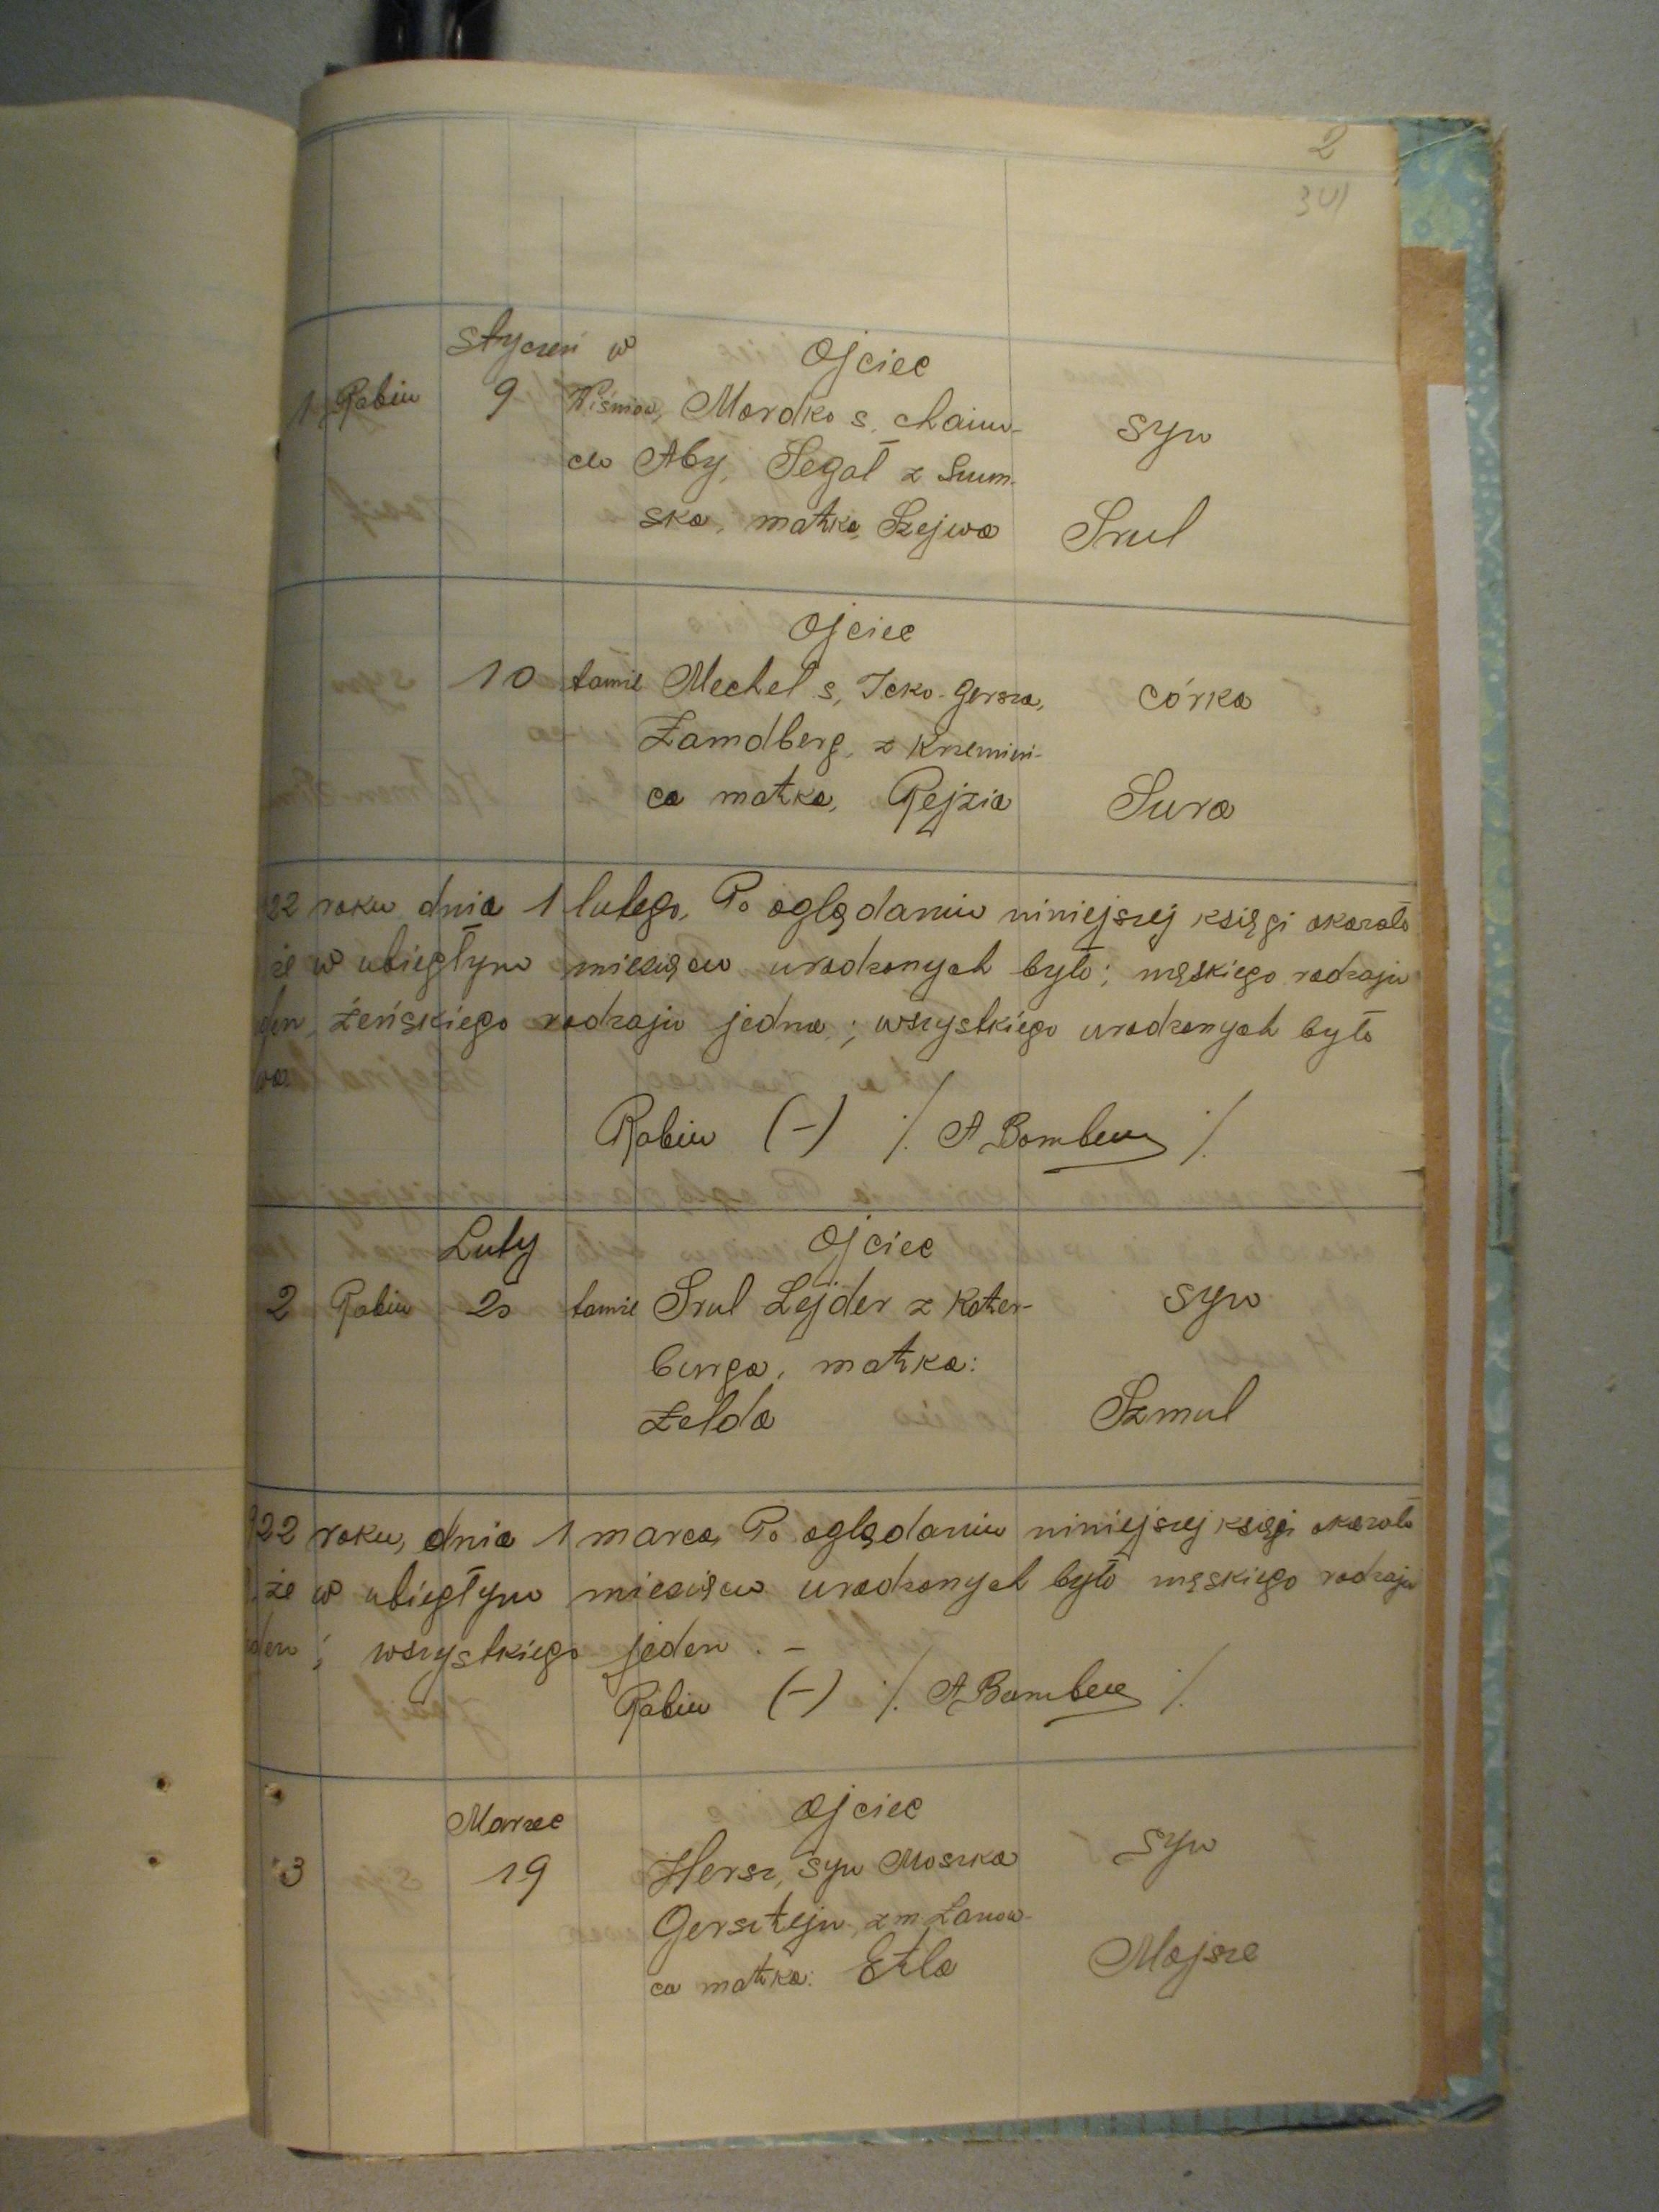 2
341
Styczeń w Ojciec
1 Rabin 9 Wiśniow, Mordko s. Chaim- syn
cu Aby, Segał z Szum-
ska, matka, Szejwa Srul
Ojciec
10 tamże Mechel s, Icko-Gersza, córka
Zamdberg, z Krzemini-
ca matka, Rejzia Sura
22 roku dnia 1 lutego, Po oglądaniu niniejszej księgi okazało
że w ubiegłym miesiącu urodzonych było; męskiego rodzaju
den, żeńskiego rodzaju jedna; wszystkiego urodzonych było
Rabin (-) /. A Bomben /.
Luty Ojciec
2 Rabin 20 tamże Srul Lejder z Kater- syn
burga, matka:
Zelda Szmul
922 roku, dnia 1 marca, Po oglądaniu niniejszej księgi okazało
że w ubiegłym miesiącu urodzonych było męskiego rodzaju
den; wszystkiego jeden. -
Rabin (-) /. A Bomben /.
Marzec Ojciec
3 19 Hersz, syn Moszka syn
Gersztejn, z m Łanow-
ca matka: Etla Mojsze